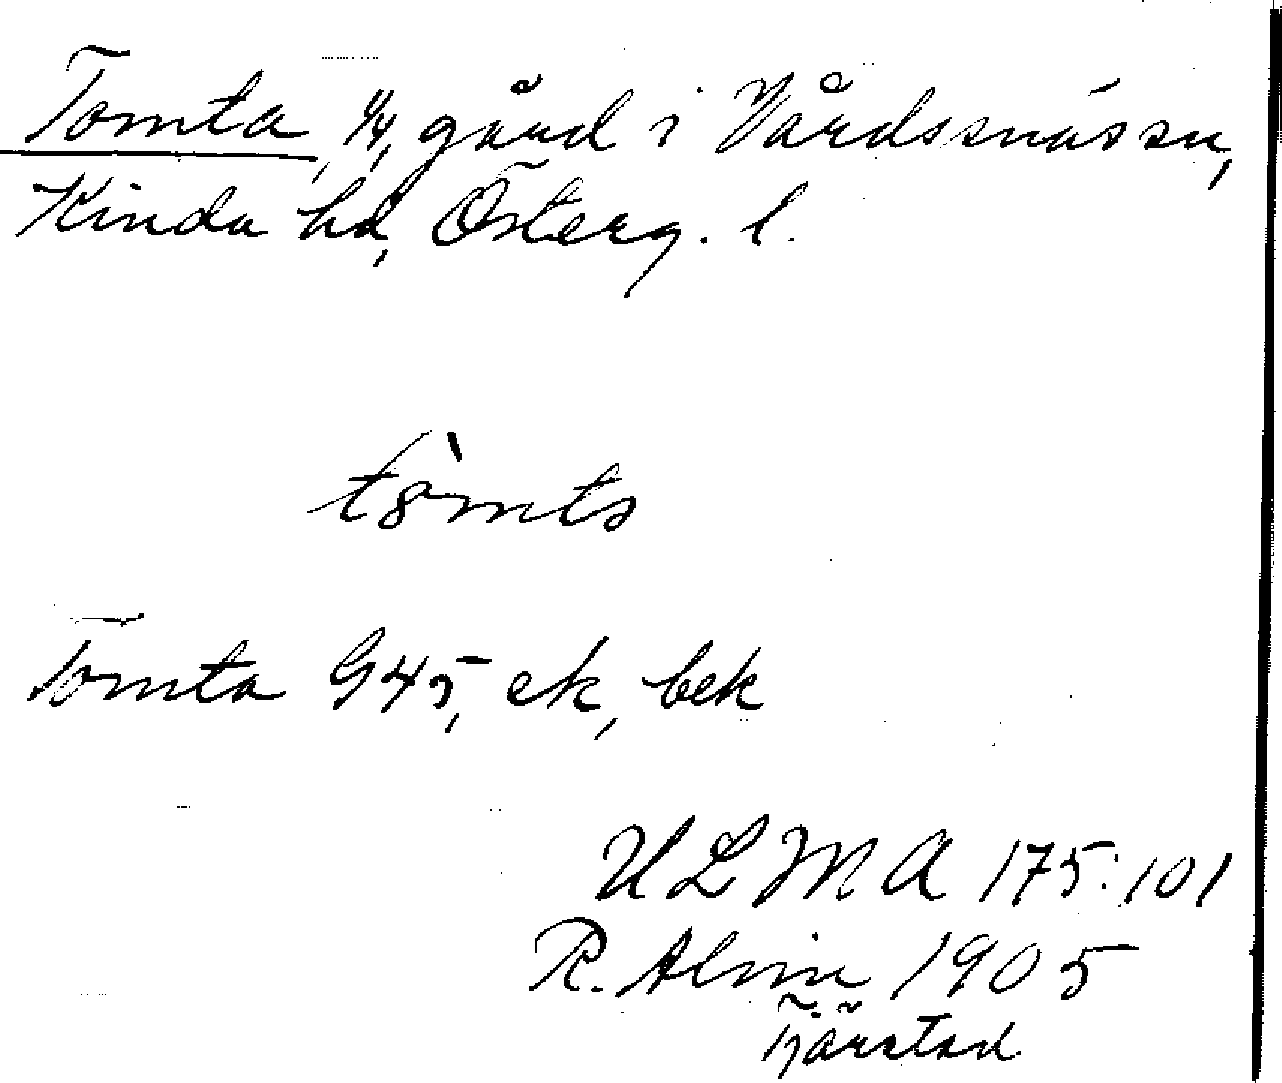 Tomta, 1/4, gård i Vårdsnässn,
Kinda hd, Österg. l.
tòmta
Tomta G45, ek, bek
ULMA 175:101
R. Alm 1905
Tjärstad